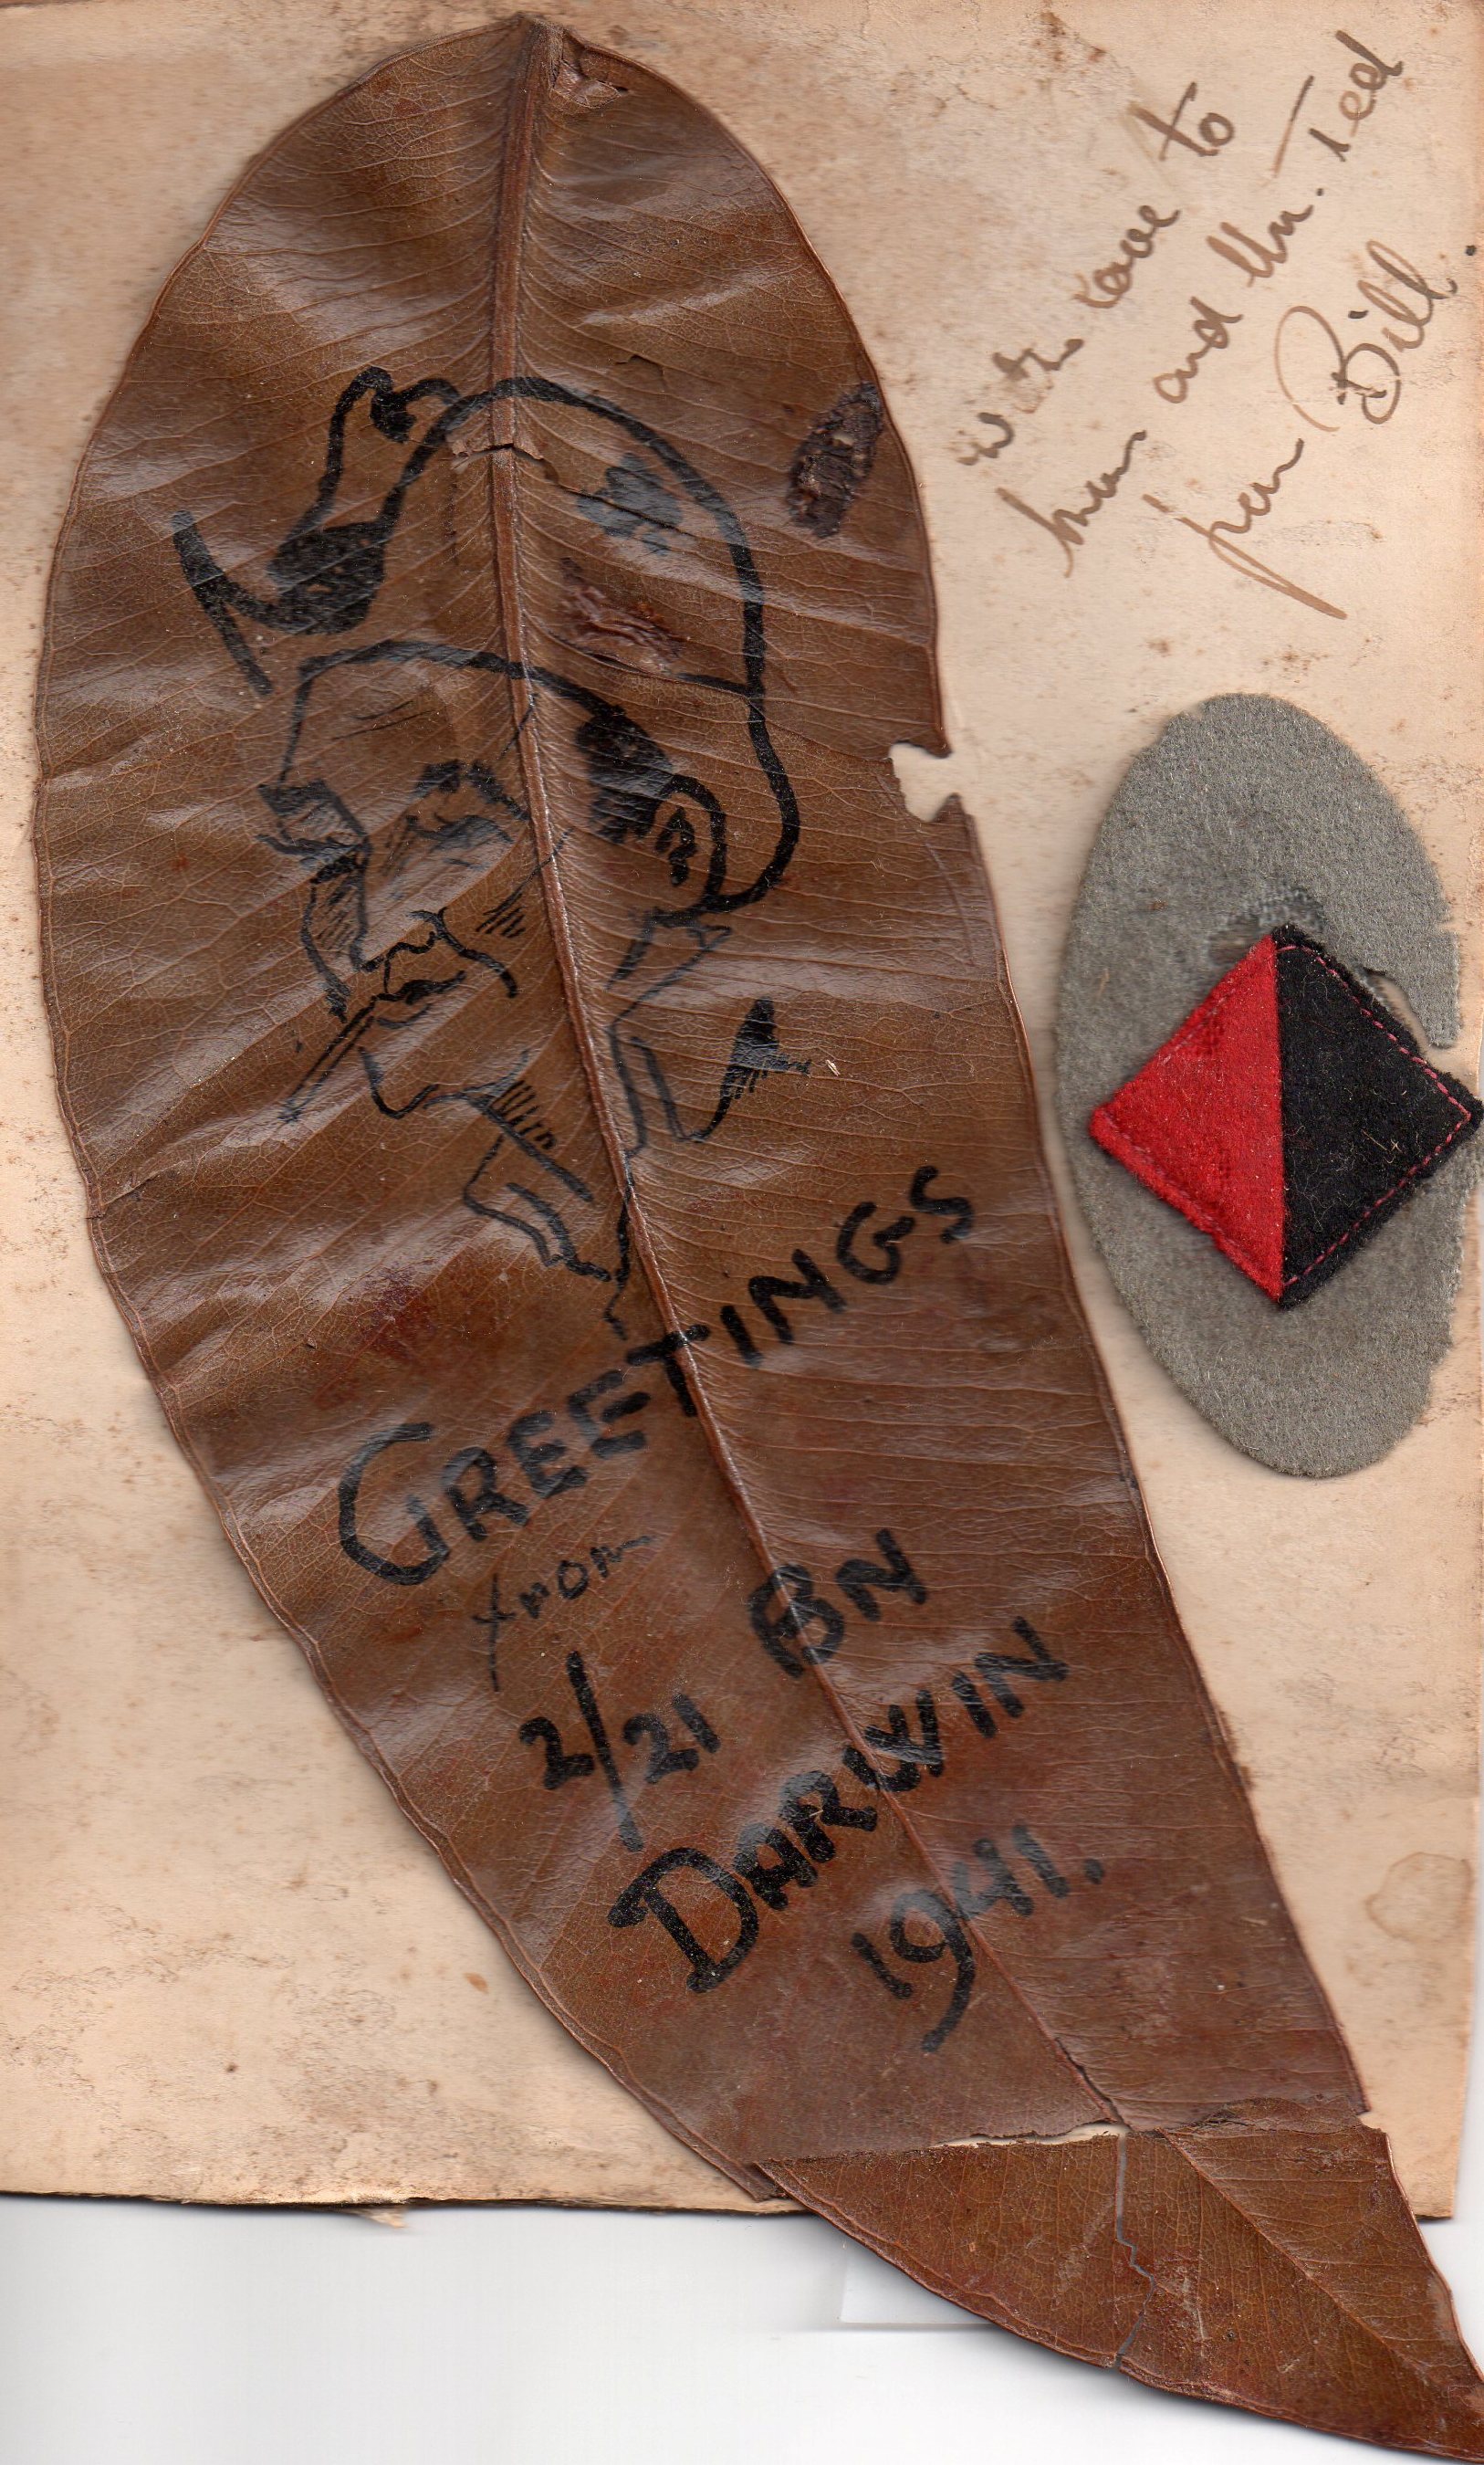 with love to
and Ted
from Bill.
GREETINGS
from
2/21 BN
DARWIN
1941.